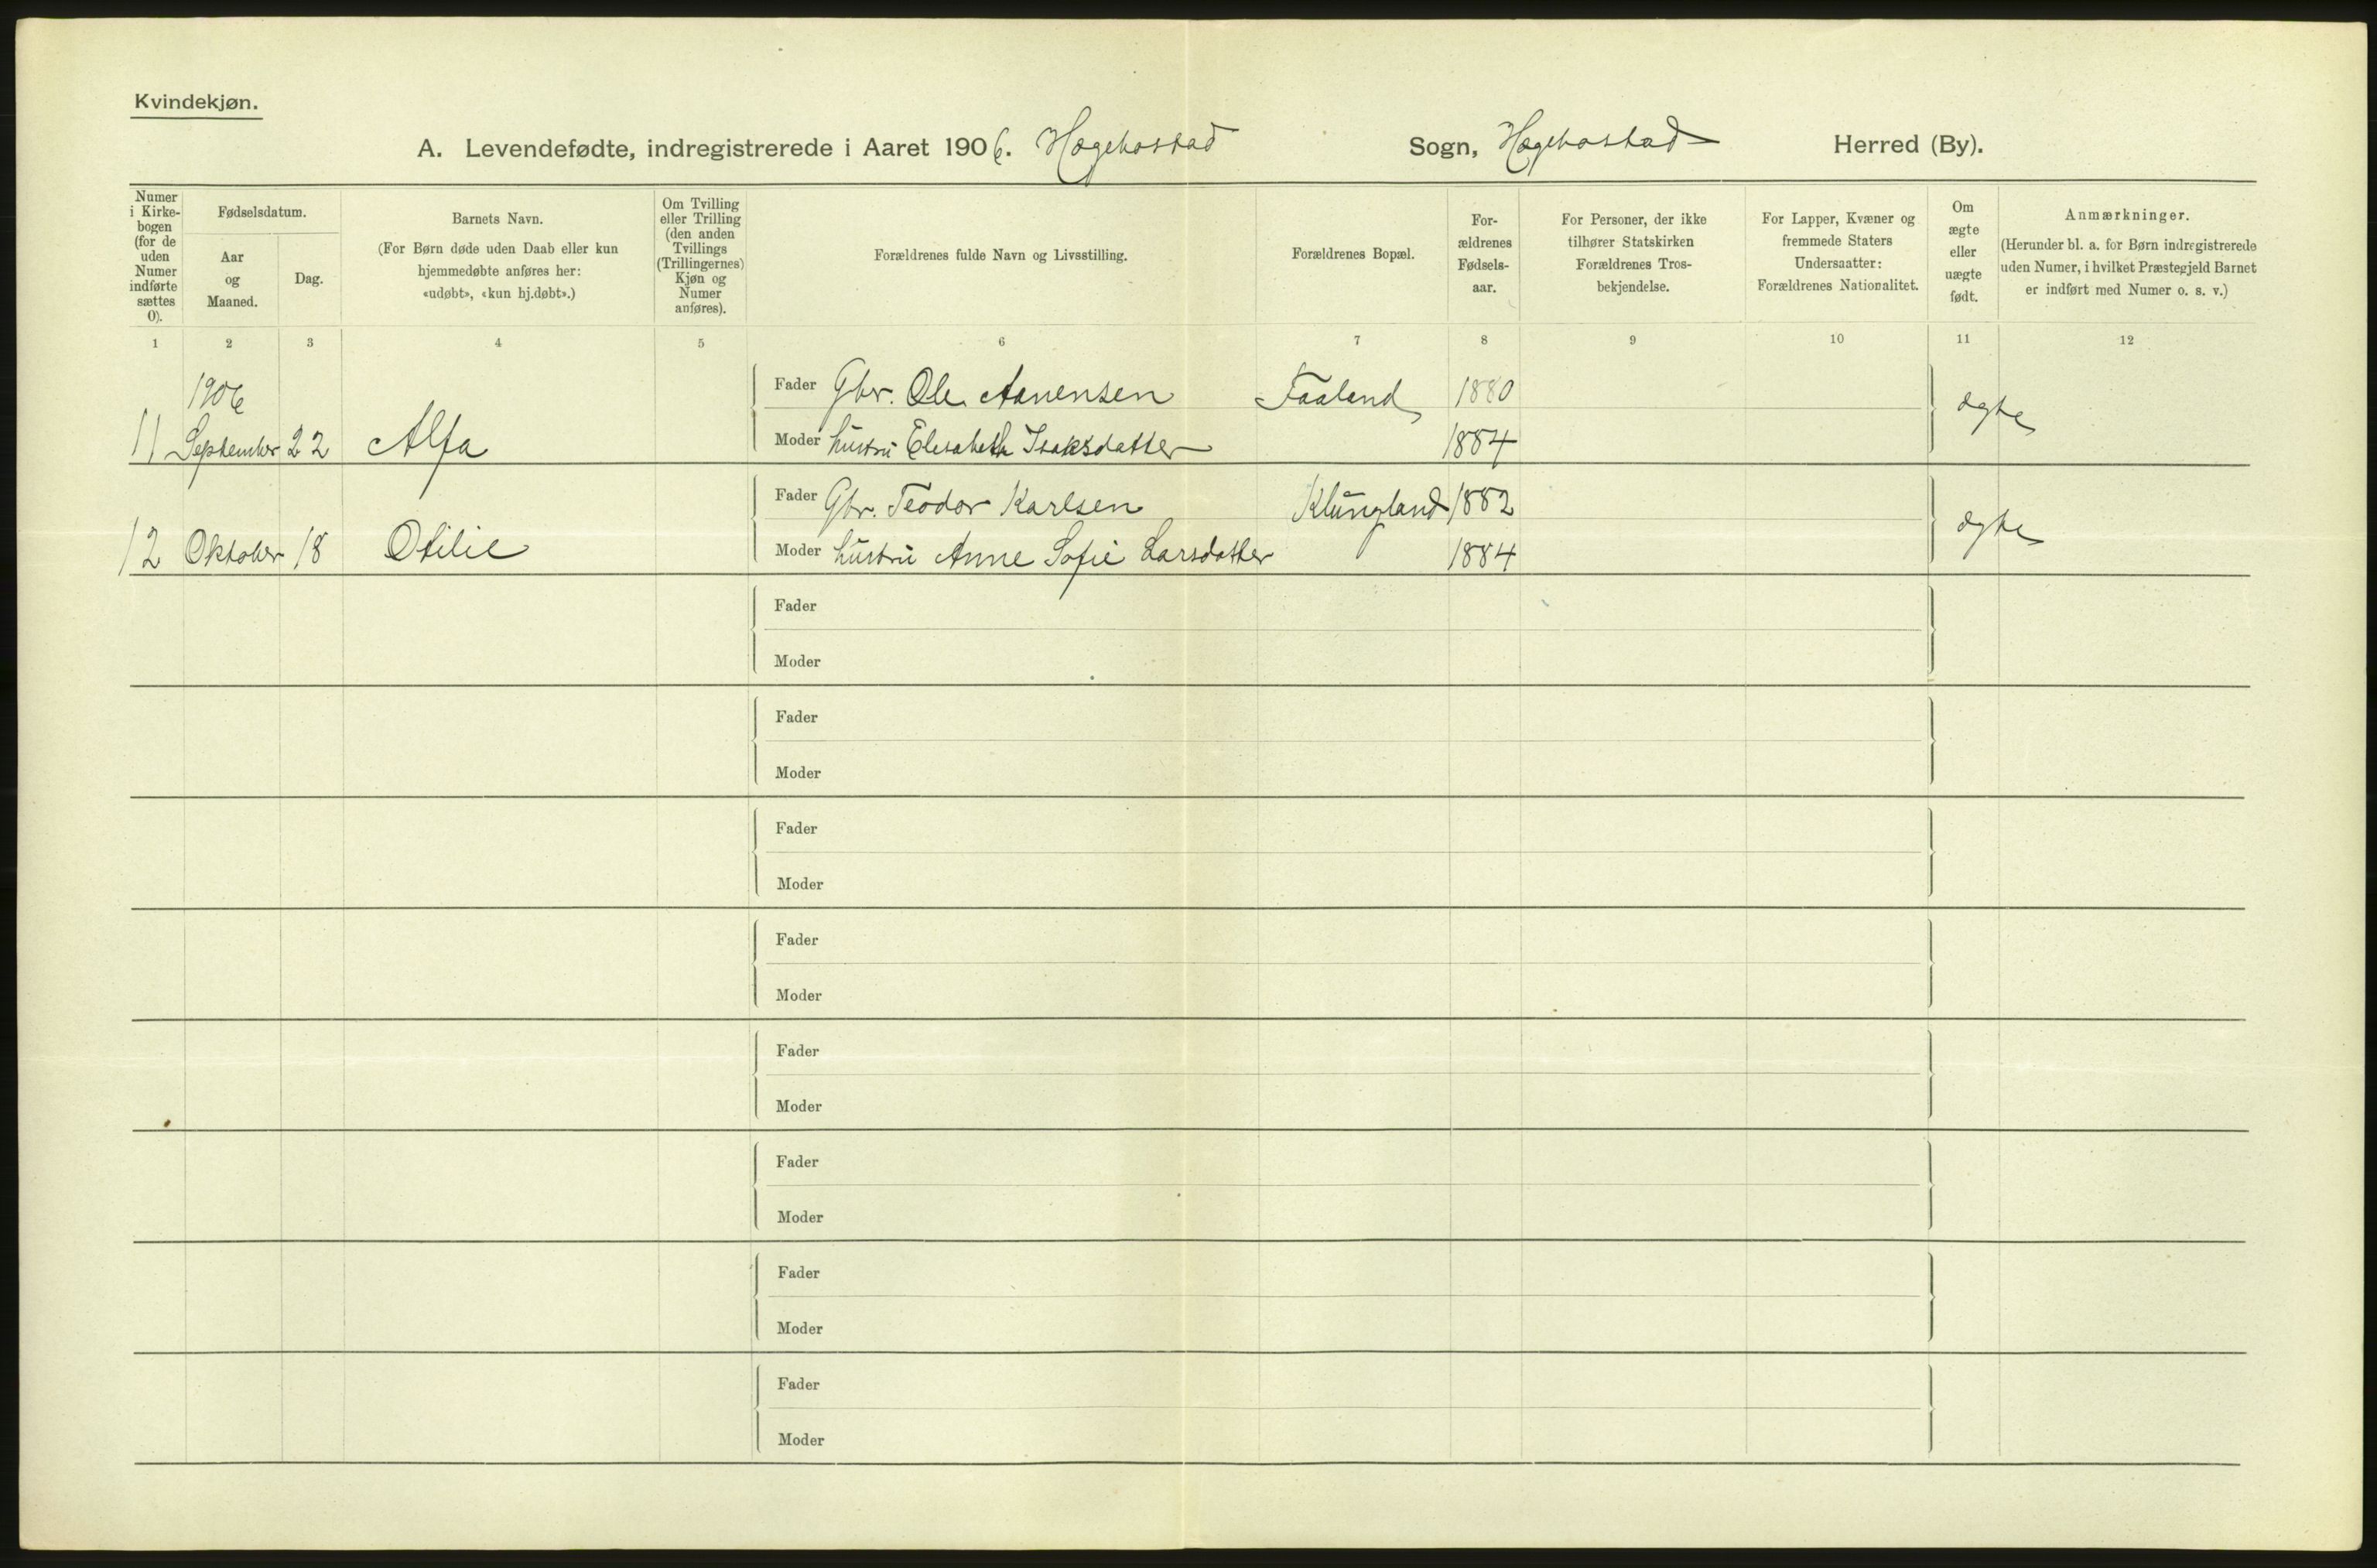 Kvindekjøn.
A. Levendefødte, indregistrerede i Aaret 1906. Hægebostad Sogn, Hægebostad Herred (By).
Numer i Kirkebogen (for de uden Numer indførte sættes 0).
Fødselsdatum.
Aar og Maaned.
Dag.
Barnets Navn.
(For Børn døde uden Daab eller kun hjemmedøbte anføres her: «udøbt», «kun hj.døbt».)
Om Tvilling eller Trilling (den anden Tvillings (Trillingernes) Kjøn og Numer anføres).
Forældrenes fulde Navn og Livsstilling.
Forældrenes Bopæl.
For-ældrenes Fødsels-aar.
For Personer, der ikke tilhører Statskirken Forældrenes Tros-bekjendelse.
For Lapper, Kvæner og fremmede Staters Undersaatter: Forældrenes Nationalitet.
Om ægte eller uægte født.
Anmærkninger.
(Herunder bl. a. for Børn indregistrerede uden Numer, i hvilket Præstegjeld Barnet er indført med Numer o. s. v.)
1 2 3 4 5 6 7 8 9 10 11 12
1906
Fader Gbr. Ole Aanensen Faaland 1880
ægte
11 September 22 Alfa Moder hustru Elisabeth Isaksdatter 1884
Fader Gbr. Teodor Karlsen Klungland 1882
ægte
12 Oktober 18 Otilie Moder hustru Anne Sofie Larsdatter 1884
Fader
Moder
Fader
Moder
Fader
Moder
Fader
Moder
Fader
Moder
Fader
Moder
Fader
Moder
Fader
Moder